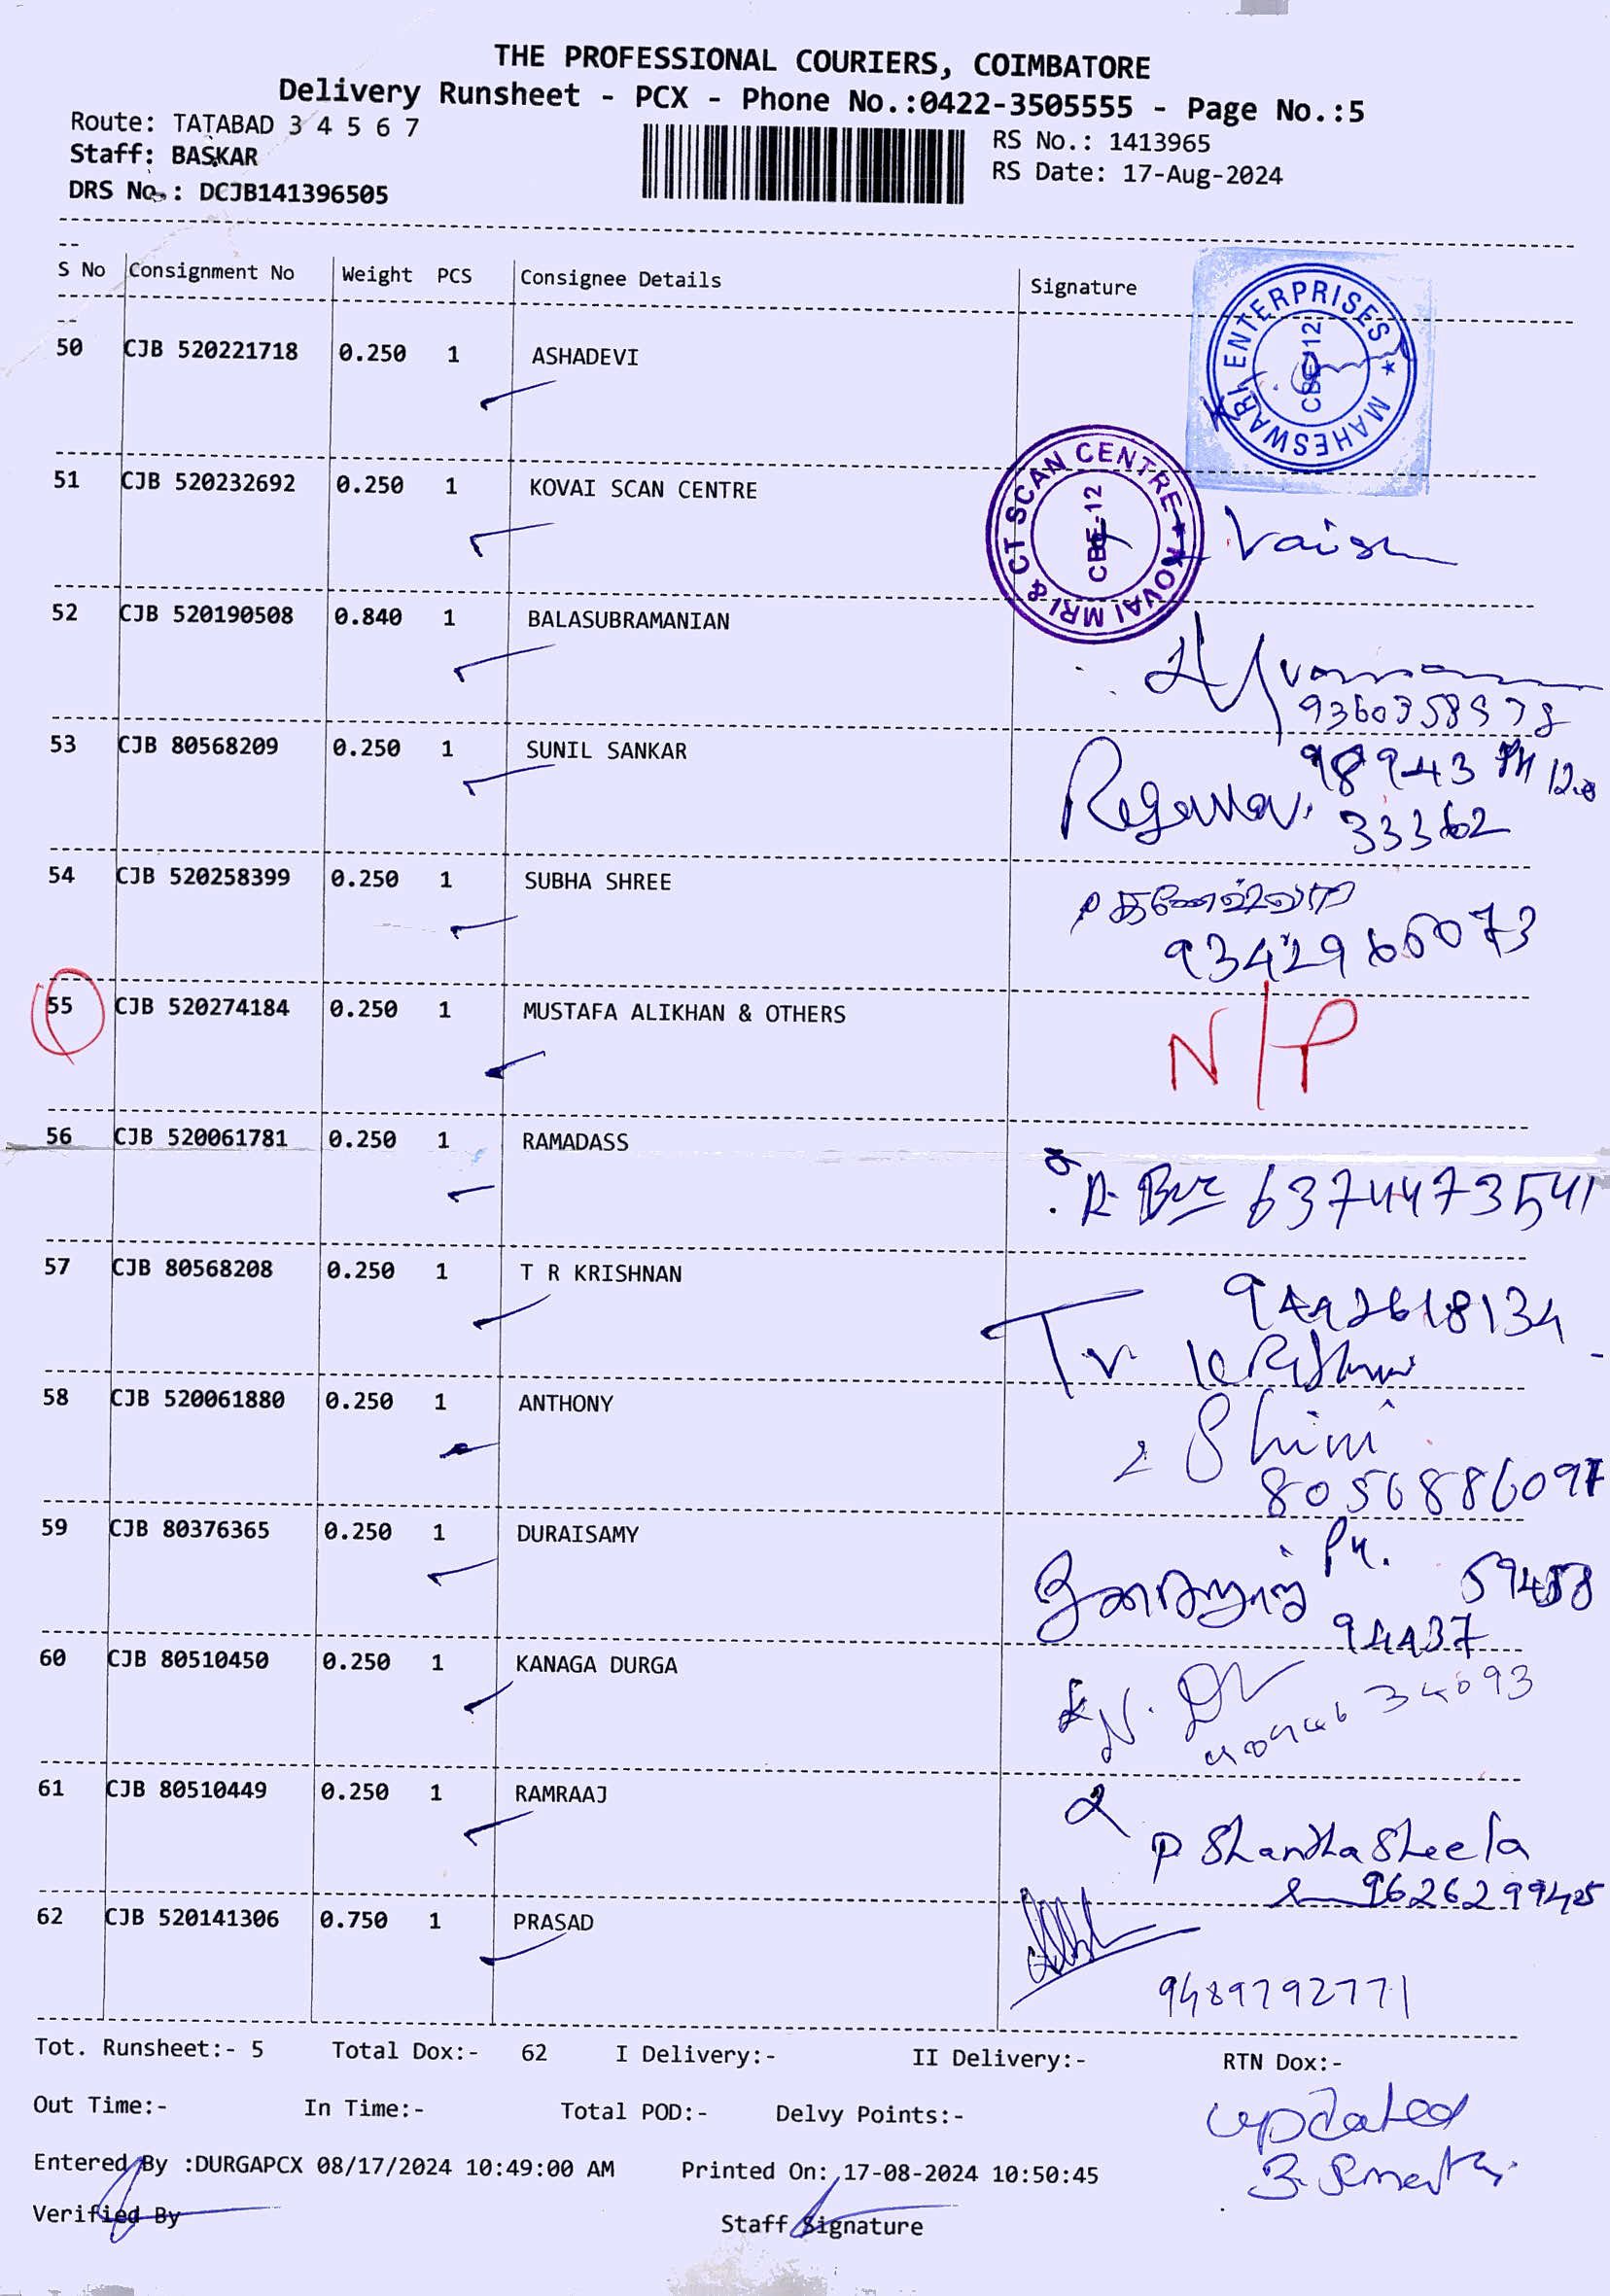 THE PROFESSIONAL COURIERS, COIMBATORE
Delivery Runsheet - PCX - Phone No.:0422-3505555 - Page No.:5
Route: TATABAD 3 4 5 6 7
RS No.: 1413965
Staff: BASKAR
RS Date: 17-Aug-2024
DRS No.: DCJB141396505
S No Consignment No Weight PCS Consignee Details Signature
MAHESWARI ENTERPRISES ★
CBE-12
50 CJB 520221718 0.250 1 ASHADEVI
51 CJB 520232692 0.250 1 KOVAI SCAN CENTRE
KOVAI MRI & CT SCAN CENTRE ★
CBE-12
Vaish
52 CJB 520190508 0.840 1 BALASUBRAMANIAN
53 CJB 80568209 0.250 1 SUNIL SANKAR
98943
33362
54 CJB 520258399 0.250 1 SUBHA SHREE
55 CJB 520274184 0.250 1 MUSTAFA ALIKHAN & OTHERS
N/P
56 CJB 520061781 0.250 1 RAMADASS
6374473541
57 CJB 80568208 0.250 1 T R KRISHNAN
9442618134
58 CJB 520061880 0.250 1 ANTHONY
Shini
8056886097
59 CJB 80376365 0.250 1 DURAISAMY
Ph.
60 CJB 80510450 0.250 1 KANAGA DURGA
61 CJB 80510449 0.250 1 RAMRAAJ
P Shantha Sheela
62 CJB 520141306 0.750 1 PRASAD
9489792771
Tot. Runsheet:- 5 Total Dox:- 62 I Delivery:- II Delivery:- RTN Dox:-
Out Time:- In Time:- Total POD:- Delvy Points:-
updated
Entered By :DURGAPCX 08/17/2024 10:49:00 AM Printed On: 17-08-2024 10:50:45
Verified By
Staff Signature